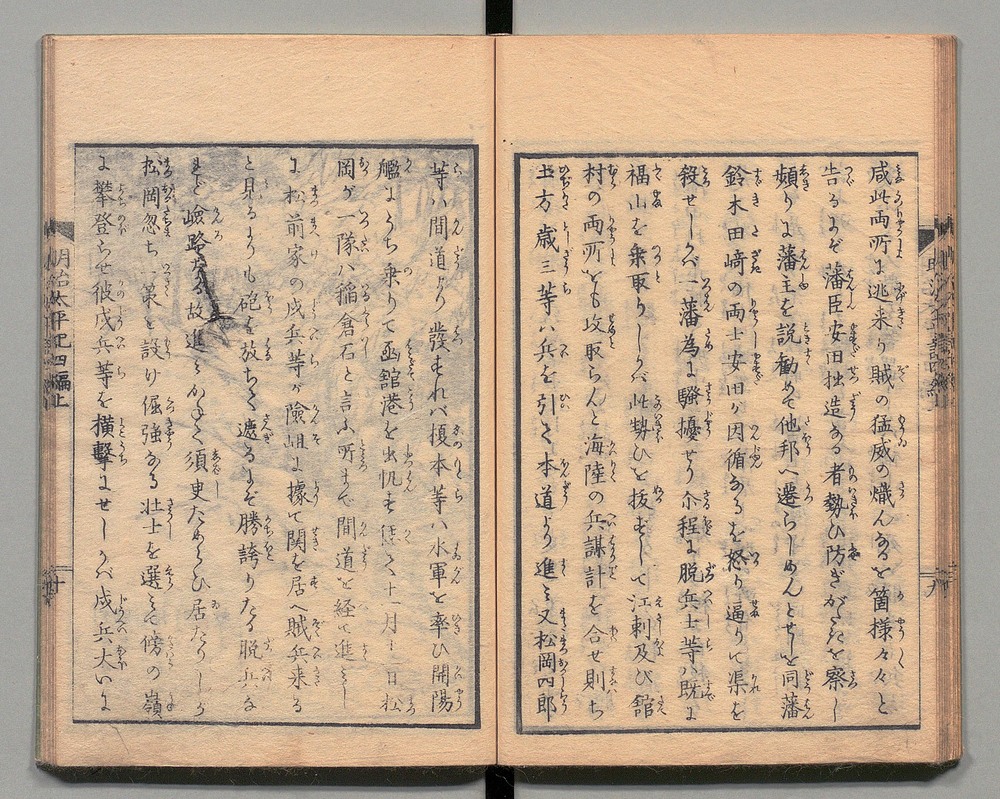 咸此両所に逃来り賊の猛威の熾んなるを箇様々々と
告るにぞ藩臣安田拙造なる者勢ひ防ぎがたきを察し
頻りに藩主を説勧めて他邦へ遷らしめんとせしを同藩
鈴木田崎の両士安田が因循なるを怒り逼りて渠を
殺せしかバ一藩為に騒擾せり尒程に脱兵士等ハ既に
福山を乗取りしかバ此勢ひを抜さずして江刺及び館
村の両所をも攻取らんと海陸の兵謀計を合せ則ち
土方歳三等ハ兵を引て本道より進ミ又松岡四郎
等ハ間道より発すれバ榎本等ハ水軍を率ひ開陽
艦にうち乗りて函館港を出帆す
十一月十二日松
岡が一隊ハ稲倉石と言ふ所まで間道を経て進ミし
に松前家の戍兵等が険岨に據て関を居へ賊兵来る
と見るよりも砲を放ちて遮るにぞ勝誇りたる脱兵な
れど嶮路なる故進ミかねて須臾ためらひ居たりしが
松岡忽ち一策を設け倔強なる壮士を選ミて傍の嶺
に攀登らせ彼戍兵等を横撃にせしかバ戍兵大いに
明治太平記四編上
十
九